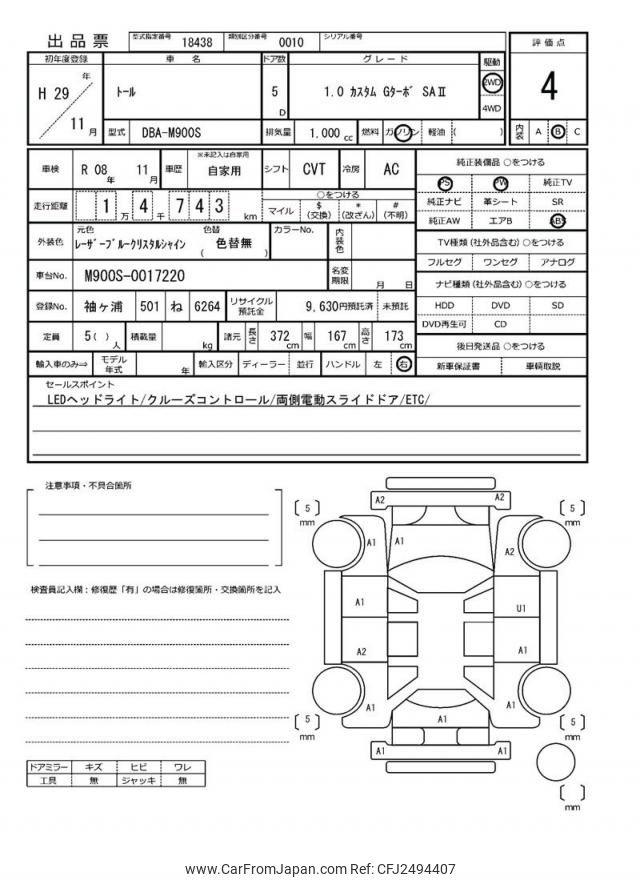 出品票
型式指定番号 18438 類別区分番号 0010 シリアル番号
評価点
4
内装 A B C
初年度登録 車名 ドア数 グレード 駆動
H 29年 11月
トール
5 D
1.0 カスタム Gターボ SAⅡ
2WD
4WD
型式 DBA-M900S 排気量 1.000 cc 燃料 ガソリン 軽油 ( )
車検 R 08年 11月 車歴 ※未記入は自家用 自家用 シフト CVT 冷房 AC
走行距離 1万 4千 7 4 3 km
○をつける
マイル $(交換) *(改ざん) #(不明)
外装色 元色 レーザーブルークリスタルシャイン 色替 ( 色替無 ) カラーNo. 内装色
車台No. M900S-0017220 名変期限 月 日
登録No. 袖ヶ浦 501 ね 6264 リサイクル預託金 9,630円預託済 未預託
定員 5( )人 積載量 kg 諸元 長さ 372cm 幅 167cm 高さ 173cm
輸入車のみ⇒ モデル年式 年 輸入区分 ディーラー 並行 ハンドル 左 右
純正装備品 ○をつける
PS PW 純正TV
純正ナビ 革シート SR
純正AW エアB ABS
TV種類(社外品含む)○をつける
フルセグ ワンセグ アナログ
ナビ種類(社外品含む)○をつける
HDD DVD SD
DVD再生可 CD
後日発送品 ○をつける
新車保証書 車輌取説
セールスポイント
LEDヘッドライト/クルーズコントロール/両側電動スライドドア/ETC/
注意事項・不具合箇所
検査員記入欄：修復歴「有」の場合は修復箇所・交換箇所を記入
ドアミラー キズ ヒビ ワレ
工具 無 ジャッキ 無
A2 A2
[ 5 ] mm [ 5 ] mm
A1 A1 A2
A1 U1
A2 A1
A1 A1
A1
[ 5 ] mm [ 5 ] mm
A1 A1
[ ] mm
www.CarFromJapan.com Ref: CFJ2494407